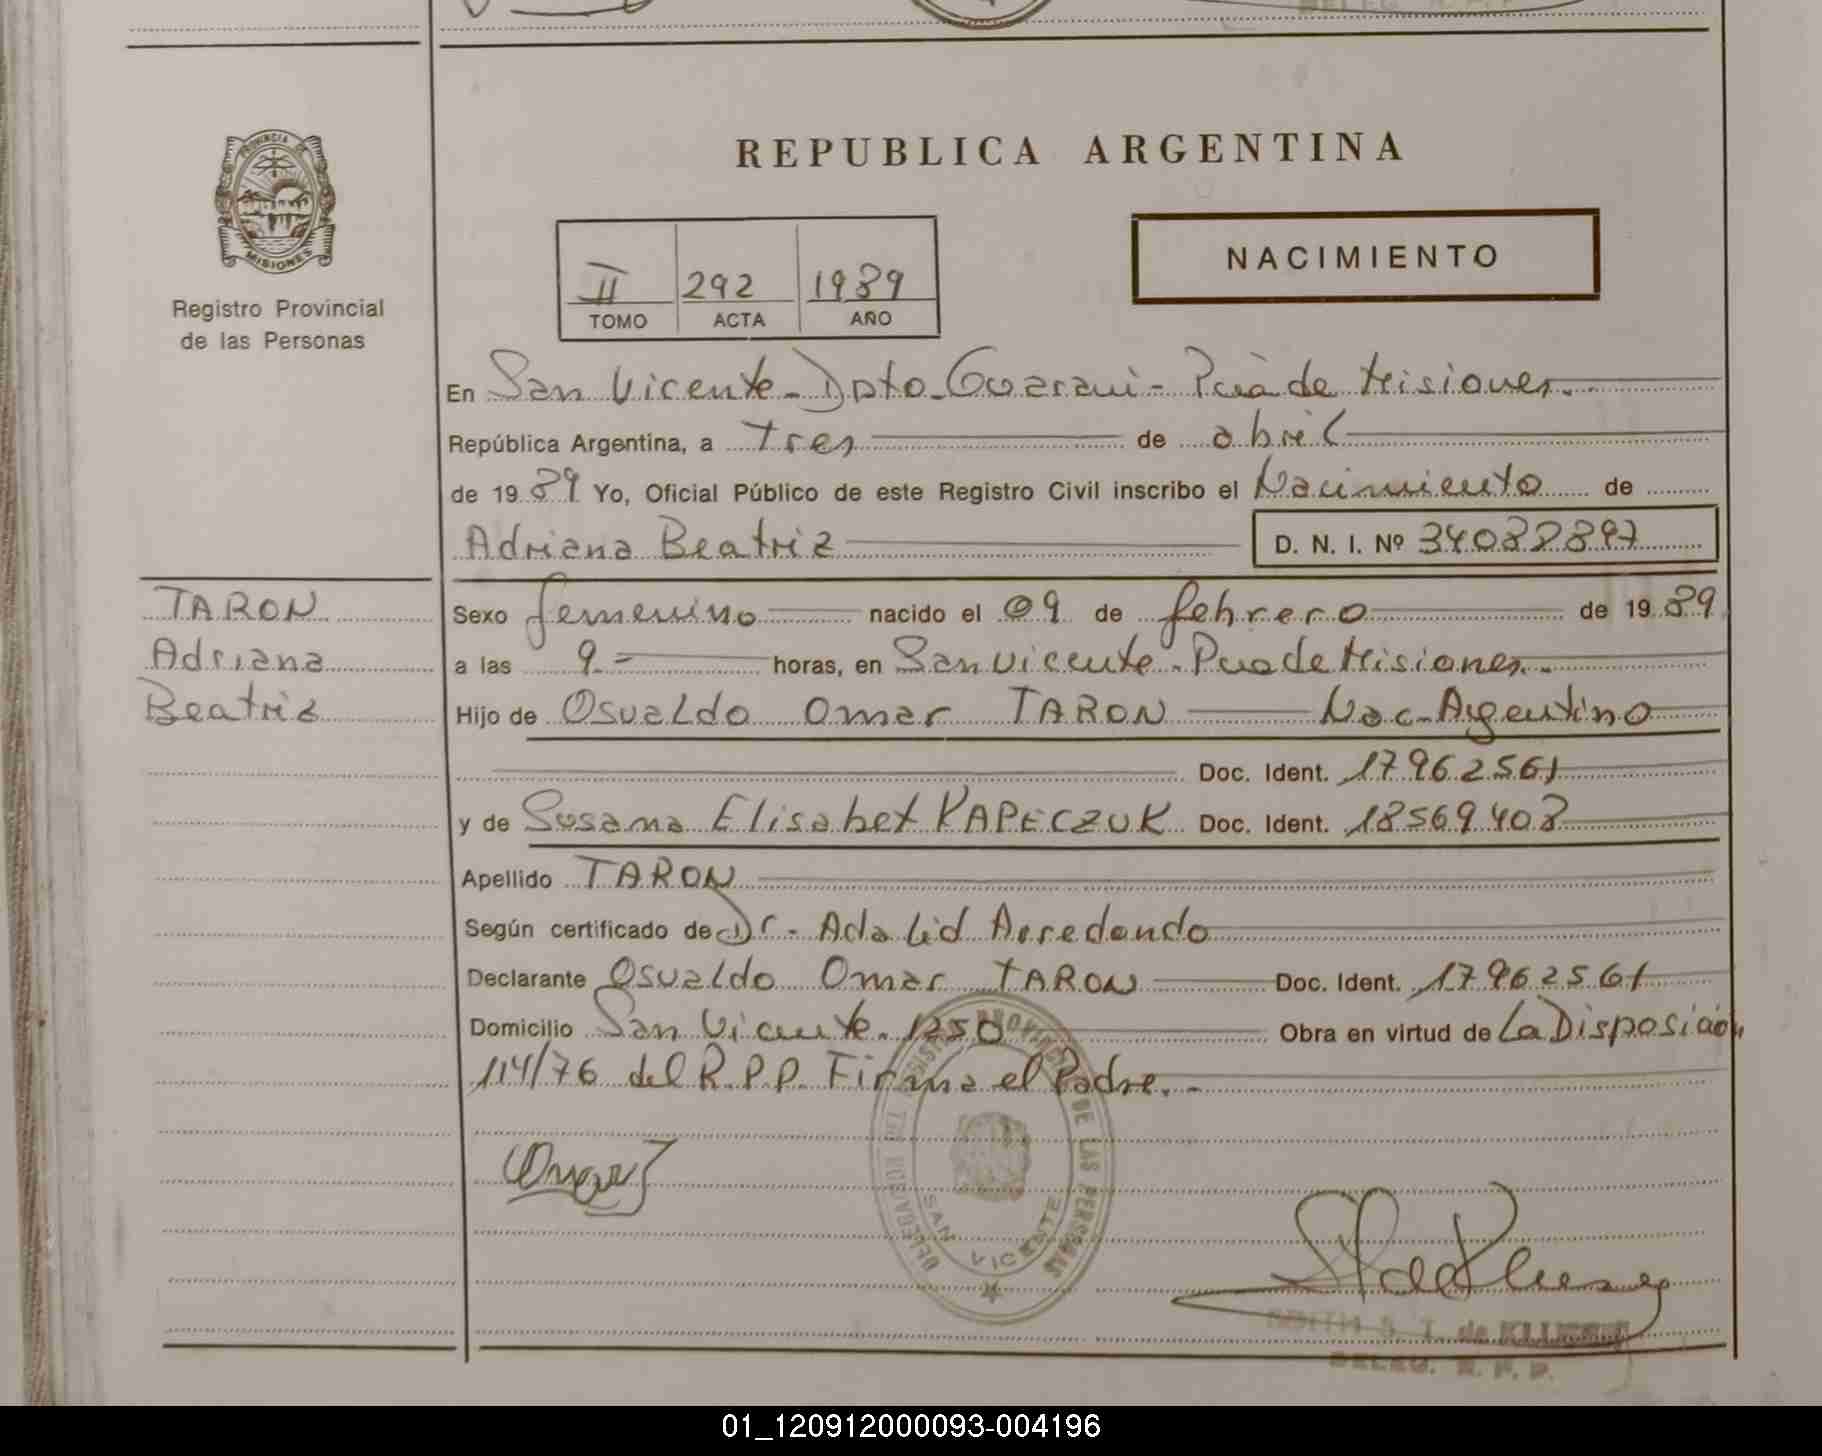 REPUBLICA ARGENTINA
PROVINCIA DE
MISIONES
Registro Provincial
de las Personas
NACIMIENTO
II 292 1989
TOMO ACTA AÑO
En San Vicente - Dpto - Guarani - Pcia de Misiones.
República Argentina, a tres de abril
de 1989 Yo, Oficial Público de este Registro Civil inscribo el Nacimiento de
Adriana Beatriz D. N. I. Nº 34088897
TARON
Adriana
Beatriz
Sexo femenino nacido el 09 de febrero de 1989
a las 9 - horas, en San Vicente - Pcia de Misiones.-
Hijo de Osvaldo Omar TARON Nac. Argentino
Doc. Ident. 17962561
y de Susana Elisabet KAPECZUK Doc. Ident. 18569408
Apellido TARON
Según certificado de Dr. Adalid Arredondo
Declarante Osvaldo Omar TARON Doc. Ident. 17962561
Domicilio San Vicente. 1250 Obra en virtud de La Disposición
114/76 del R.P.P. Firma el Padre.-
PROVINCIAL DE LAS PERSONAS
SAN VICENTE
DELEG. R. P. P.
01_120912000093-004196